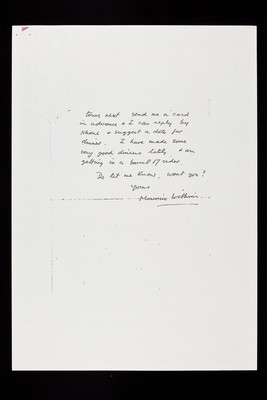 town next send me a card
in advance & I can reply by
phone & suggest a date for
dinner. I have made some
very good dinners lately & am
getting in a barrel of cider
Do let me know, won't you?
Yours